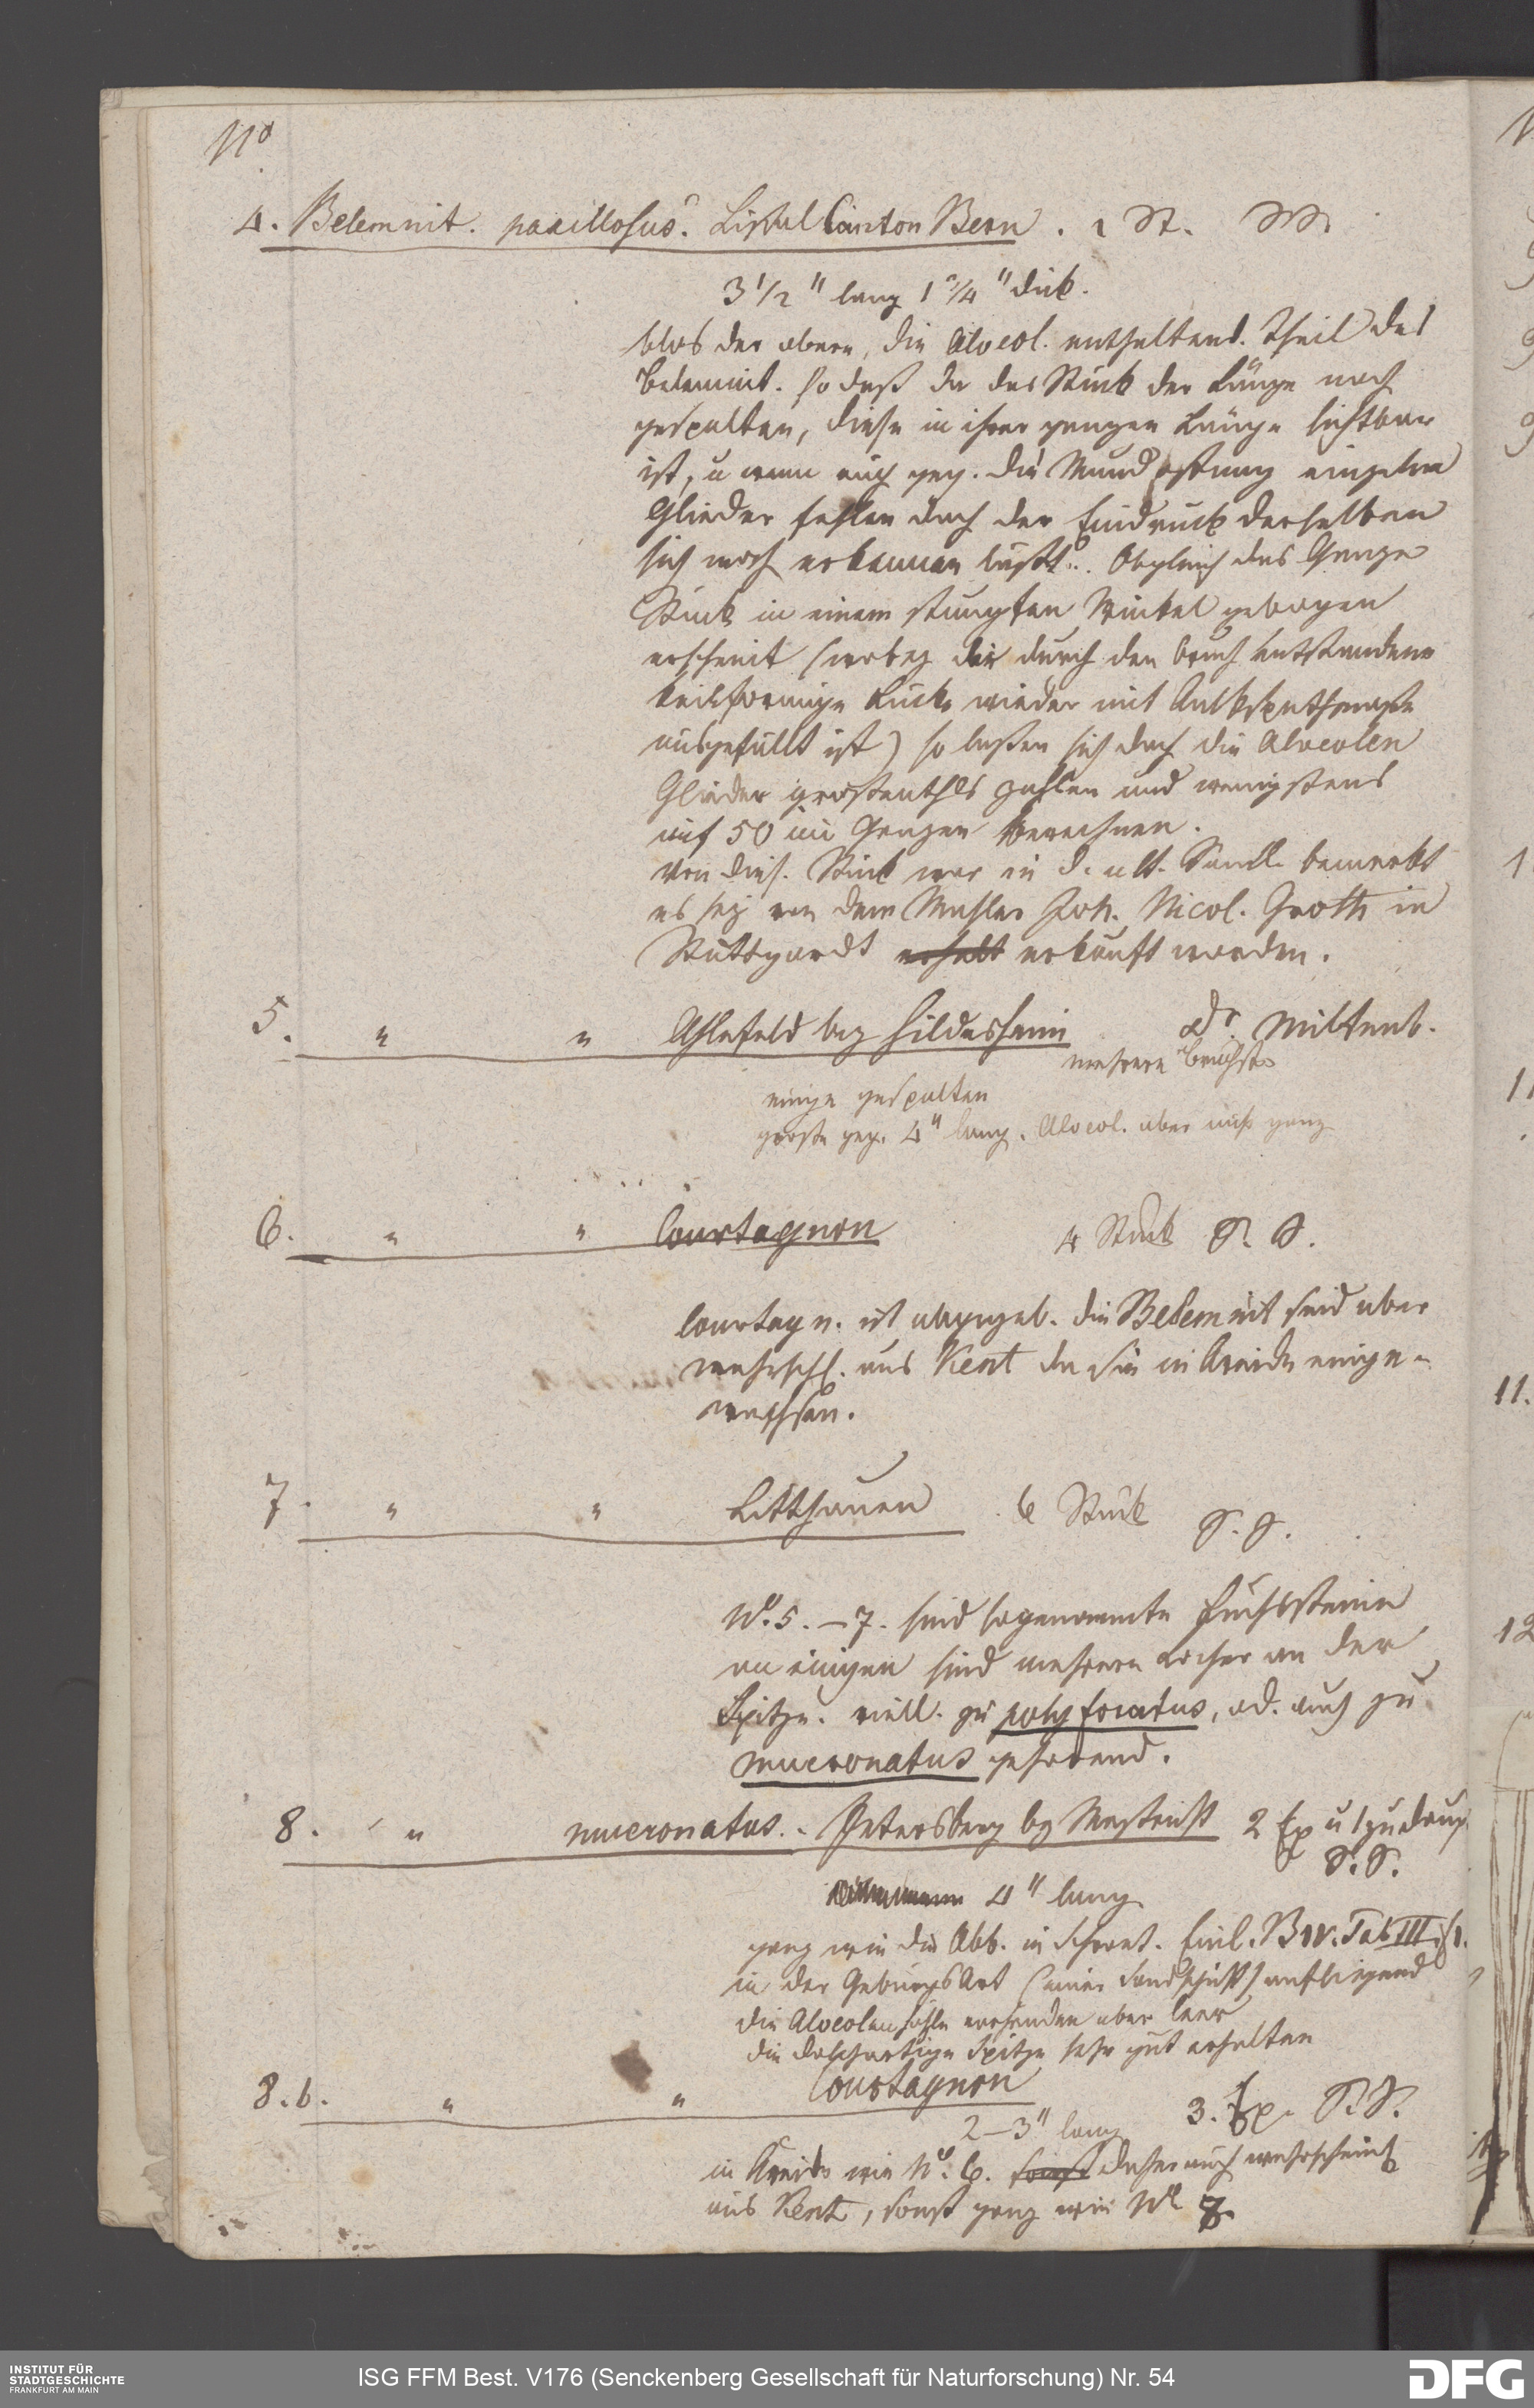 No
4. Belemnit. paxillosus? Listal Canton Bern. 1 St.
3 1/2 " lang 1 3/4 " dick.
blos der obere, die Alveol. enthaltend. Theil des
Belemnit. so daß da das Stück der Länge nach
gespalten, diese in ihrer ganzen Länge sichtbar
ist, u wenn auch geg. die Mundöffnung einzelne
Glieder fehlen doch der Eindruck derselben
sich noch erkennen läßt. Obgleich das Ganze
Stück in einem stumpfen Winkel gebogen
erscheint (wobey die durch den Bruch entstandene
keilformige Lücke wieder mit Kalkspathmaße
ausgefüllt ist) so laßen sich doch die Alveolen
Glieder grostentheils zahlen und wenigstens
auf 50 im Ganzen berechnen.
Von dies. Stück war in d. alt. Samml. bemerkt
es sey von dem Mahler Joh. Nicol. Groth in
Stuttgardt erhalt erkauft worden.
5. " " Ahlefeld bey Hildesheim Dr. Miltenb.
mehrere Bruchst.
einige gespalten
groste geg. 4" lang. Alveol. aber nicht ganz
6. " " Courtagnon 4 Stück S. S.
Courtagn. ist angegeb. die Belemnit sind aber
wahrschl. aus Kent da sie in Kreide einge-
wachsen.
7. " " Litthauen 6 Stück S. S.
No. 5. – 7. sind sogenannte Luchssteine
an einigen sind mehrere Locher an der
Spitze. viell. zu polyforatus, od. auch zu
mucronatus gehorend.
8. " mucronatus. Petersberg by Mastricht 2 Ex
S. S.
4" lang
ganz wie die Abb. in Schröt. Einl. B IV. Tab III f 1.
in der Gebürgs Art (einer Sandschicht) aufliegend
die Alveolenhöhle vorhanden aber leer
die dolchartige Spitze sehr gut erhalten
8. b. " " Courtagnon
2–3" lang 3. Ex. S. S.
in Kreide wie No. 6. sonst daher auch wahrscheinl
aus Kent, sonst ganz wie No 8.
INSTITUT FÜR
STADTGESCHICHTE
FRANKFURT AM MAIN
ISG FFM Best. V176 (Senckenberg Gesellschaft für Naturforschung) Nr. 54
DFG